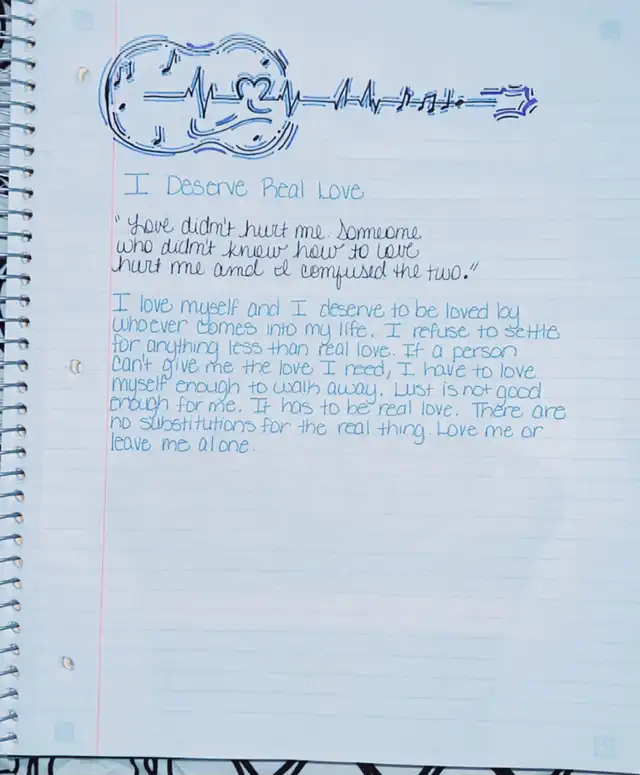 I Deserve Real Love
"Love didn't hurt me. Someone
who didn't know how to love
hurt me and I confused the two."
I love myself and I deserve to be loved by
whoever comes into my life. I refuse to settle
for anything less than real love. If a person
can't give me the love I need, I have to love
myself enough to walk away. Lust is not good
enough for me. It has to be real love. There are
no substitutions for the real thing. Love me or
leave me alone.